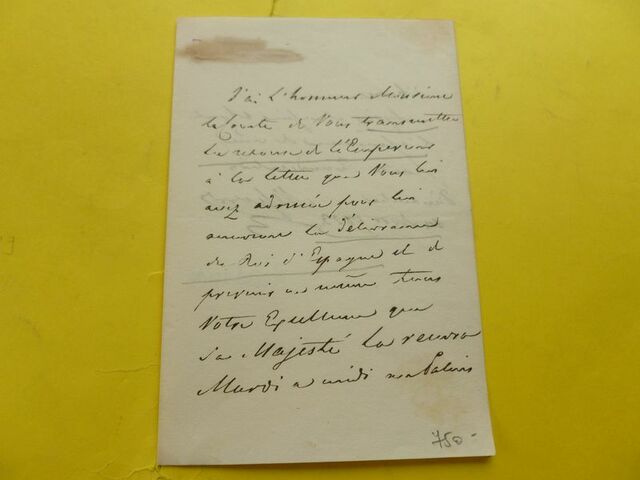 J'ai L'honneur Monsieur
le Comte de Vous transmettre
La réponse de l'Empereur
à la lettre que Vous lui
avez adressée pour lui
annoncer la délivrance
du Roi d'Espagne et
préviens en même tems
Votre Excellence que
Sa Majesté La recevra
Mardi a midi au Palais
750-